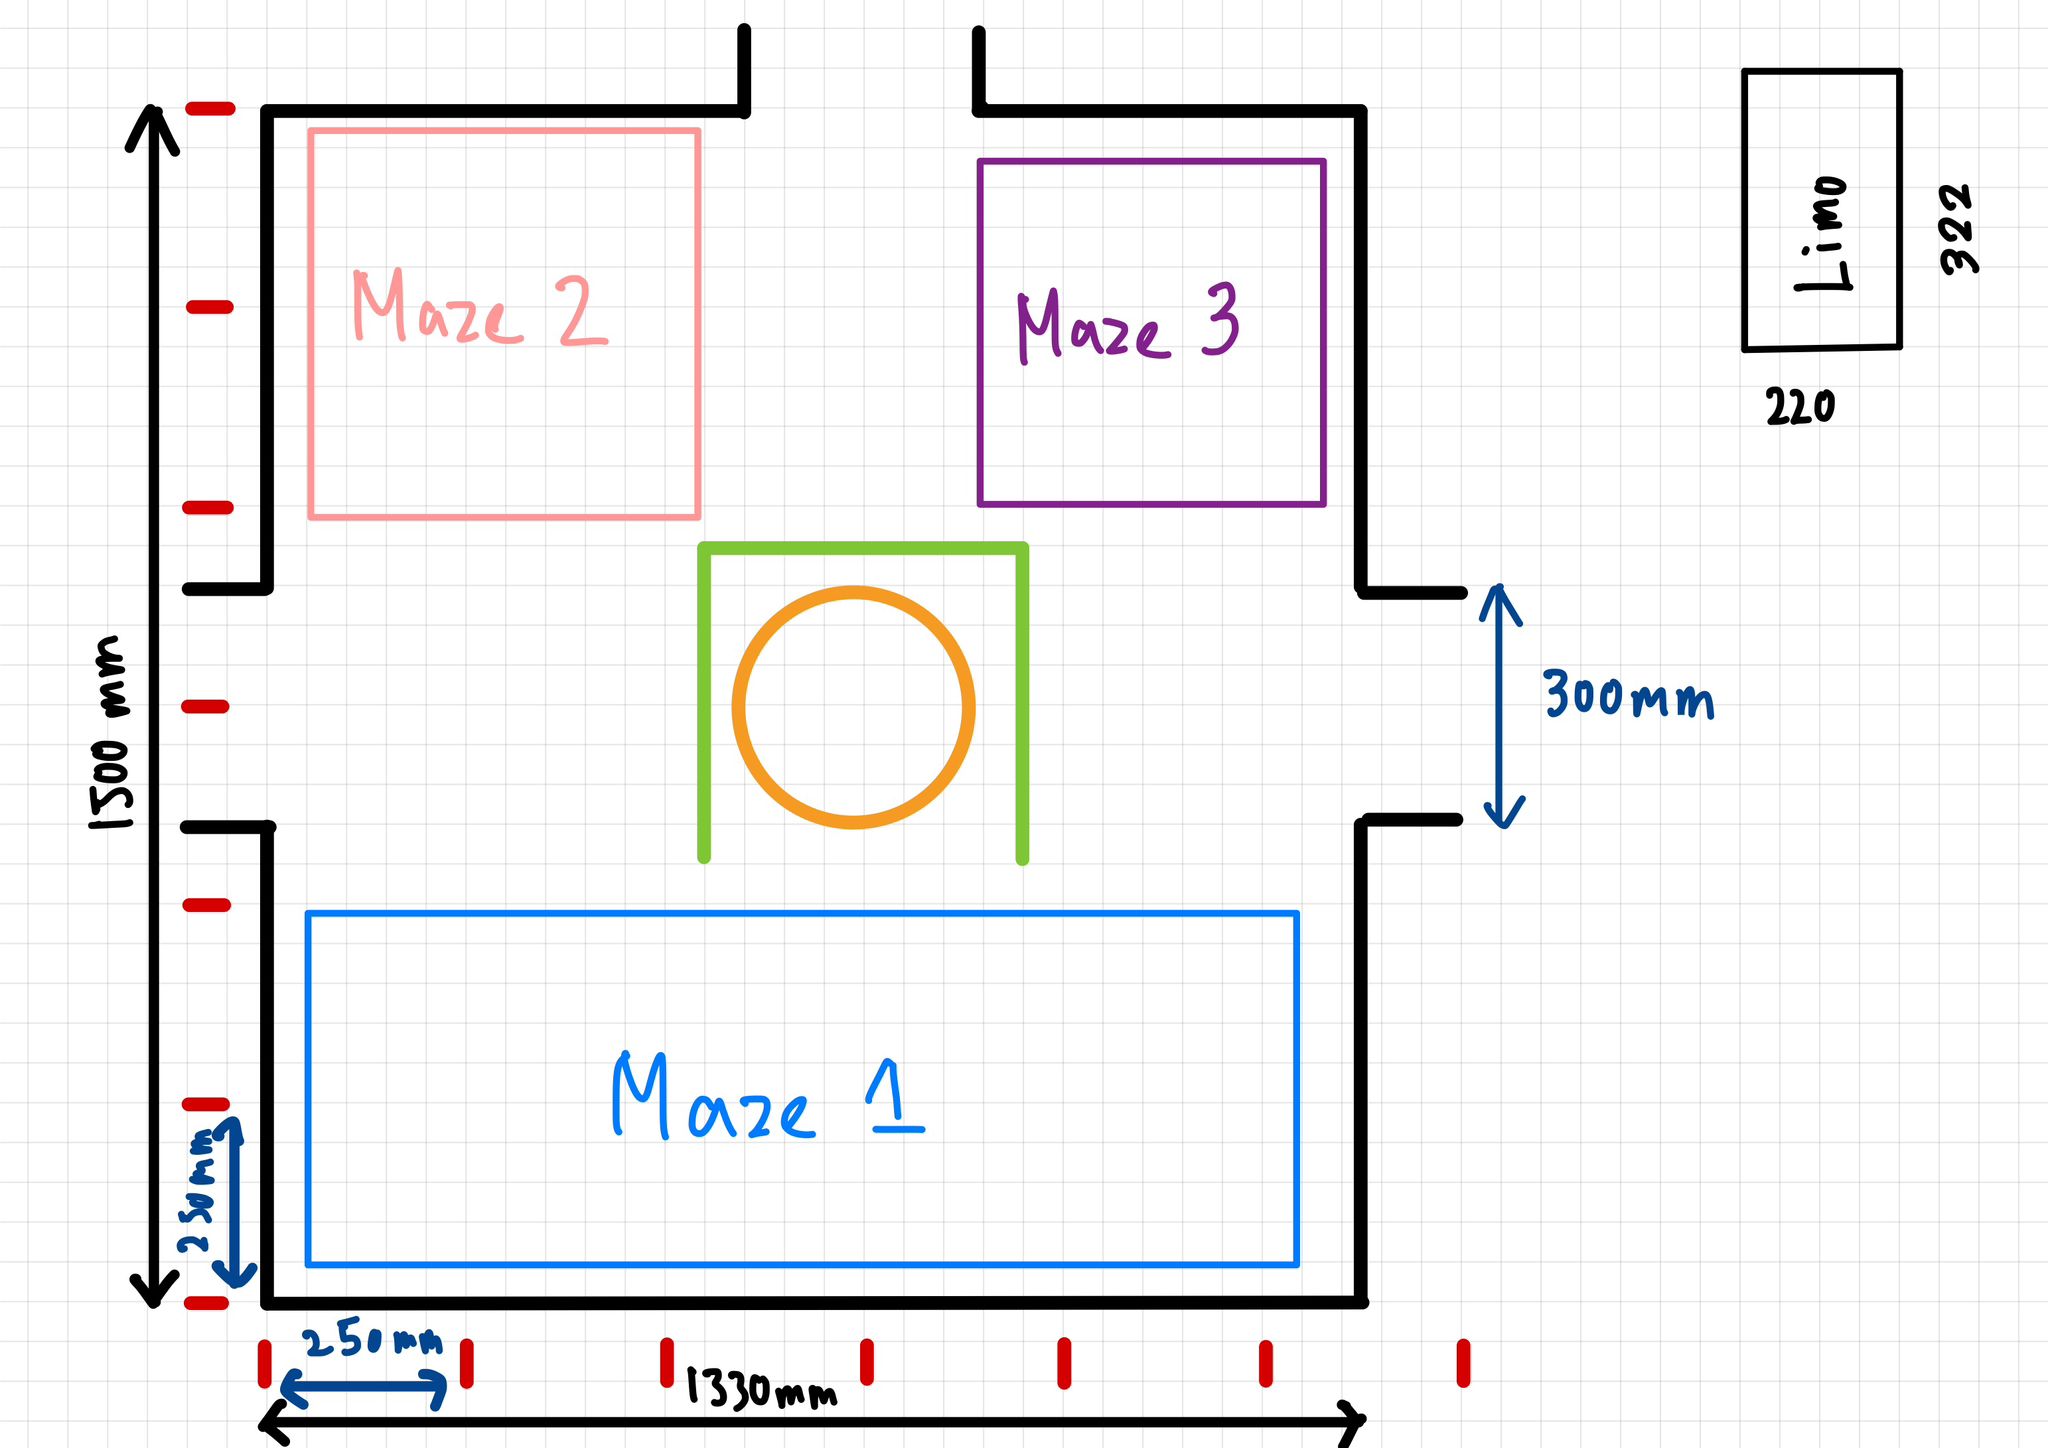 Maze 2
Maze 3
Limo
322
220
1500 mm
300mm
Maze 1
250mm
250mm
1330mm